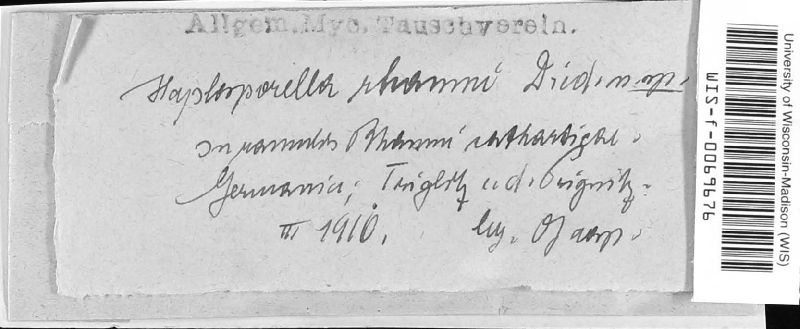 Allgem. Myc. Tauschverein.
Haplosporella rhamni Died. n. sp.
In ramulis Rhamni catharticae.
Germania; Triglitz i. d. Prignitz.
III 1910. leg. O Jaap.
University of Wisconsin-Madison (WIS)
WIS-f-0069676